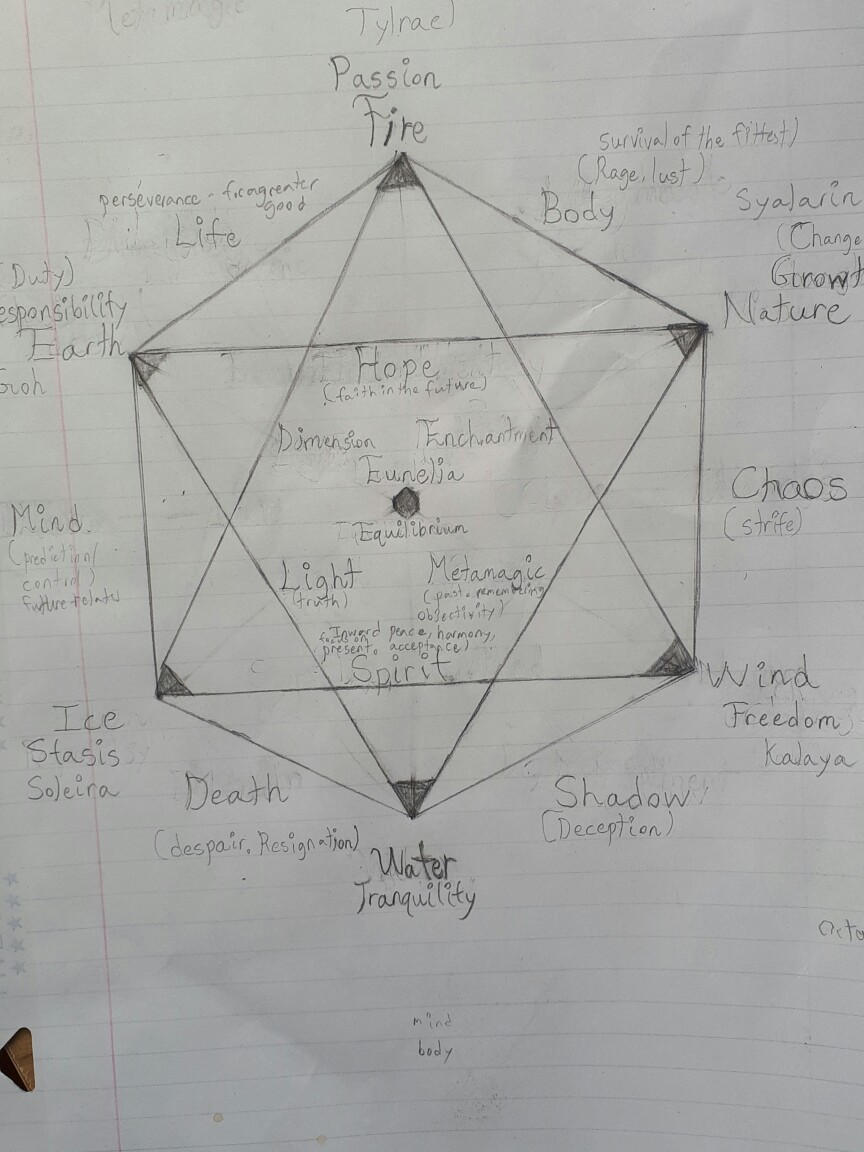 Metamagic
Tylrae)
Passion
Fire
survival of the fittest)
(Rage, lust)
Body
perseverance - for a greater
good
Life
Syalarin
(Change
Growt
Nature
(Duty)
esponsibility
Earth
Groh
Hope
(faith in the future)
Dimension
Enchantment
Eunelia
Equilibrium
Chaos
(strife)
Mind.
(prediction/
control)
future relate
Light
(truth)
Metamagic
(past. remembering
objectivity)
Inward peace, harmony,
focus on
present. acceptance)
Spirit
Wind
Freedom
Kalaya
Ice
Stasis
Soleira
Death
(despair. Resignation)
Shadow
(Deception)
Water
Tranquility
Octo
mind
body